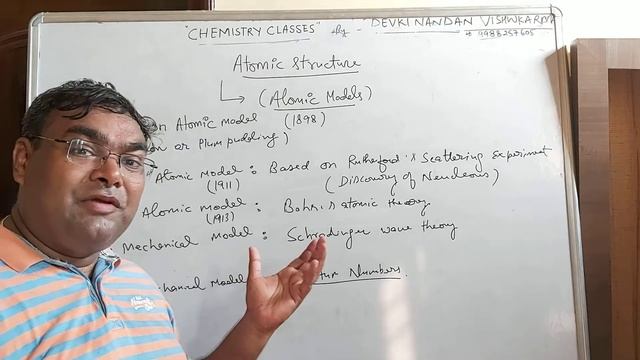 "CHEMISTRY CLASSES" By - DEVKINANDAN VISHWKARMA
9988257605
Atomic Structure
(Atomic Models)
on Atomic model (1898)
on or Plum pudding)
Atomic Model : Based on Rutherford's Scattering Experiment
(1911) (Discovery of Neucleous)
Atomic model : Bohr's atomic theory
(1913)
Mechanical Model : Schrodinger wave theory
chanical Model tum Numbers.